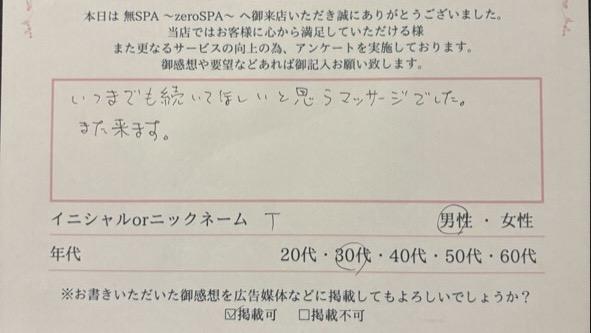 本日は 無SPA ～zeroSPA～ へ御来店いただき誠にありがとうございました。
当店ではお客様に心から満足していただける様
また更なるサービスの向上の為、アンケートを実施しております。
御感想や要望などあれば御記入お願い致します。
いつまでも続いてほしいと思うマッサージでした。
また来ます。
イニシャルorニックネーム T 男性・女性
年代 20代・30代・40代・50代・60代
※お書きいただいた御感想を広告媒体などに掲載してもよろしいでしょうか？
☑掲載可 □掲載不可